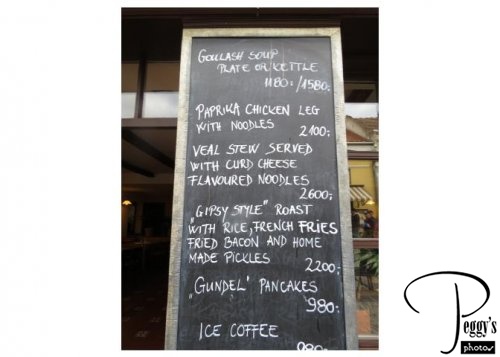 GOULASH SOUP
PLATE OR KETTLE
1180.-/1580.-
PAPRIKA CHICKEN LEG
WITH NOODLES 2100.-
VEAL STEW SERVED
WITH CURD CHEESE
FLAVOURED NOODLES
2600.-
„GIPSY STYLE" ROAST
WITH RICE, FRENCH FRIES
FRIED BACON AND HOME
MADE PICKLES
2200.-
„GUNDEL' PANCAKES
980.-
ICE COFFEE
Peggy's
photos